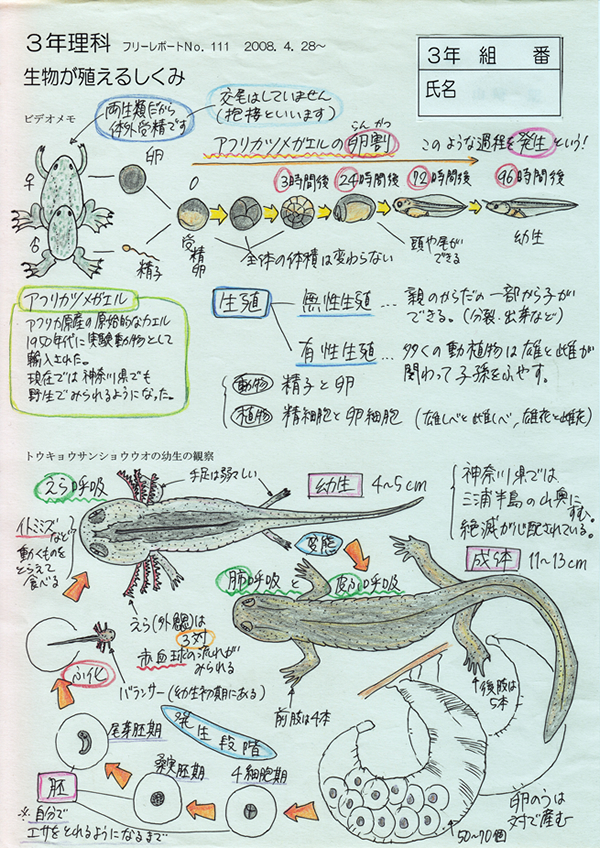 3年理科 フリーレポートNo. 111 2008. 4. 28～
3年 組 番
氏名
生物が殖えるしくみ
ビデオメモ
両生類だから
体外受精です
交尾はしていません
(抱接といいます)
アフリカツメガエルの卵割
らんかつ
このような過程を発生という!
♀
♂
卵
精子
0
3時間後
24時間後
72時間後
96時間後
受精
卵
全体の体積は変わらない
頭や尾が
できる
幼生
アフリカツメガエル
アフリカ原産の原始的なカエル
1950年代に実験動物として
輸入された。
現在では神奈川県でも
野生でみられるようになった。
生殖
無性生殖 … 親のからだの一部から子が
できる。(分裂・出芽など)
有性生殖 … 多くの動植物は雄と雌が
関わって子孫をふやす。
動物 精子と卵
植物 精細胞と卵細胞 (雄しべと雌しべ, 雄花と雌花)
トウキョウサンショウウオの幼生の観察
えら呼吸
手足は弱々しい
幼生 4～5cm
神奈川県では
三浦半島の山奥に
すむ。
絶滅が心配されている。
イトミミズなど
動くものを
とらえて
食べる
変態
成体 11～13cm
肺呼吸と皮ふ呼吸
えら(外鰓)は
3対
赤血球の流れが
みられる
ふ化
バランサー(幼生初期にある)
前肢は4本
後肢は
5本
発生段階
尾芽胚期
桑実胚期
4細胞期
胚
※自分で
エサをとれるようになるまで
50～70個
卵のうは
対で産む